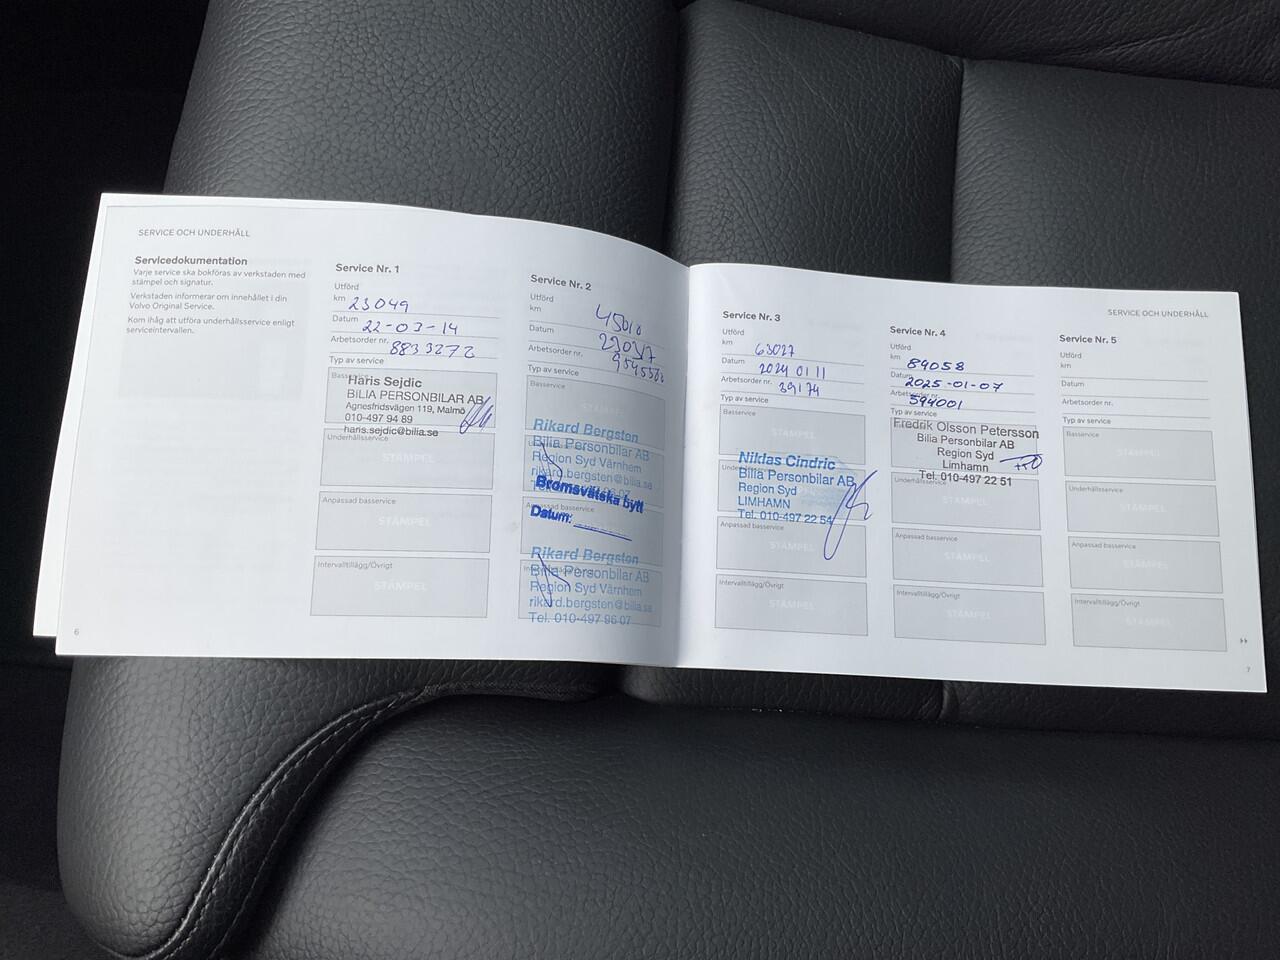 SERVICE OCH UNDERHÅLL
Servicedokumentation
Varje service ska bokföras av verkstaden med
stämpel och signatur.
Verkstaden informerar om innehållet i din
Volvo Original Service.
Kom ihåg att utföra underhållsservice enligt
serviceintervallen.
6
Service Nr. 1
Utförd
km 23049
Datum 22-03-14
Arbetsorder nr. 8833272
Typ av service
Haris Sejdic
BILIA PERSONBILAR AB
Agnesfridsvägen 119, Malmö
010-497 94 89
haris.sejdic@bilia.se
Underhållsservice
STÄMPEL
Anpassad basservice
STÄMPEL
Intervalltillägg/Övrigt
STÄMPEL
Service Nr. 2
Utförd
km 45010
Datum 230317
Arbetsorder nr.
Typ av service
Basservice
STÄMPEL
Rikard Bergsten
Bilia Personbilar AB
Region Syd Värnhem
rikard.bergsten@bilia.se
Bromsvätska bytt
Datum:
Rikard Bergsten
Bilia Personbilar AB
Region Syd Värnhem
rikard.bergsten@bilia.se
Tel. 010-497 96 07
Service Nr. 3
Utförd
km 63027
Datum 2024 01 11
Arbetsorder nr. 39174
Typ av service
Basservice
STÄMPEL
Niklas Cindric
Bilia Personbilar AB
Region Syd
LIMHAMN
Tel. 010-497 22 54
Anpassad basservice
STÄMPEL
Intervalltillägg/Övrigt
STÄMPEL
SERVICE OCH UNDERHÅLL
Service Nr. 4
Utförd
km 89058
Datum 2025-01-07
Arbetsorder nr. 594001
Typ av service
Fredrik Olsson Petersson
Bilia Personbilar AB
Region Syd
Limhamn
Tel. 010-497 22 51
Underhållsservice
STÄMPEL
Anpassad basservice
STÄMPEL
Intervalltillägg/Övrigt
STÄMPEL
Service Nr. 5
Utförd
km
Datum
Arbetsorder nr.
Typ av service
Basservice
STÄMPEL
Underhållsservice
STÄMPEL
Anpassad basservice
STÄMPEL
Intervalltillägg/Övrigt
STÄMPEL
7